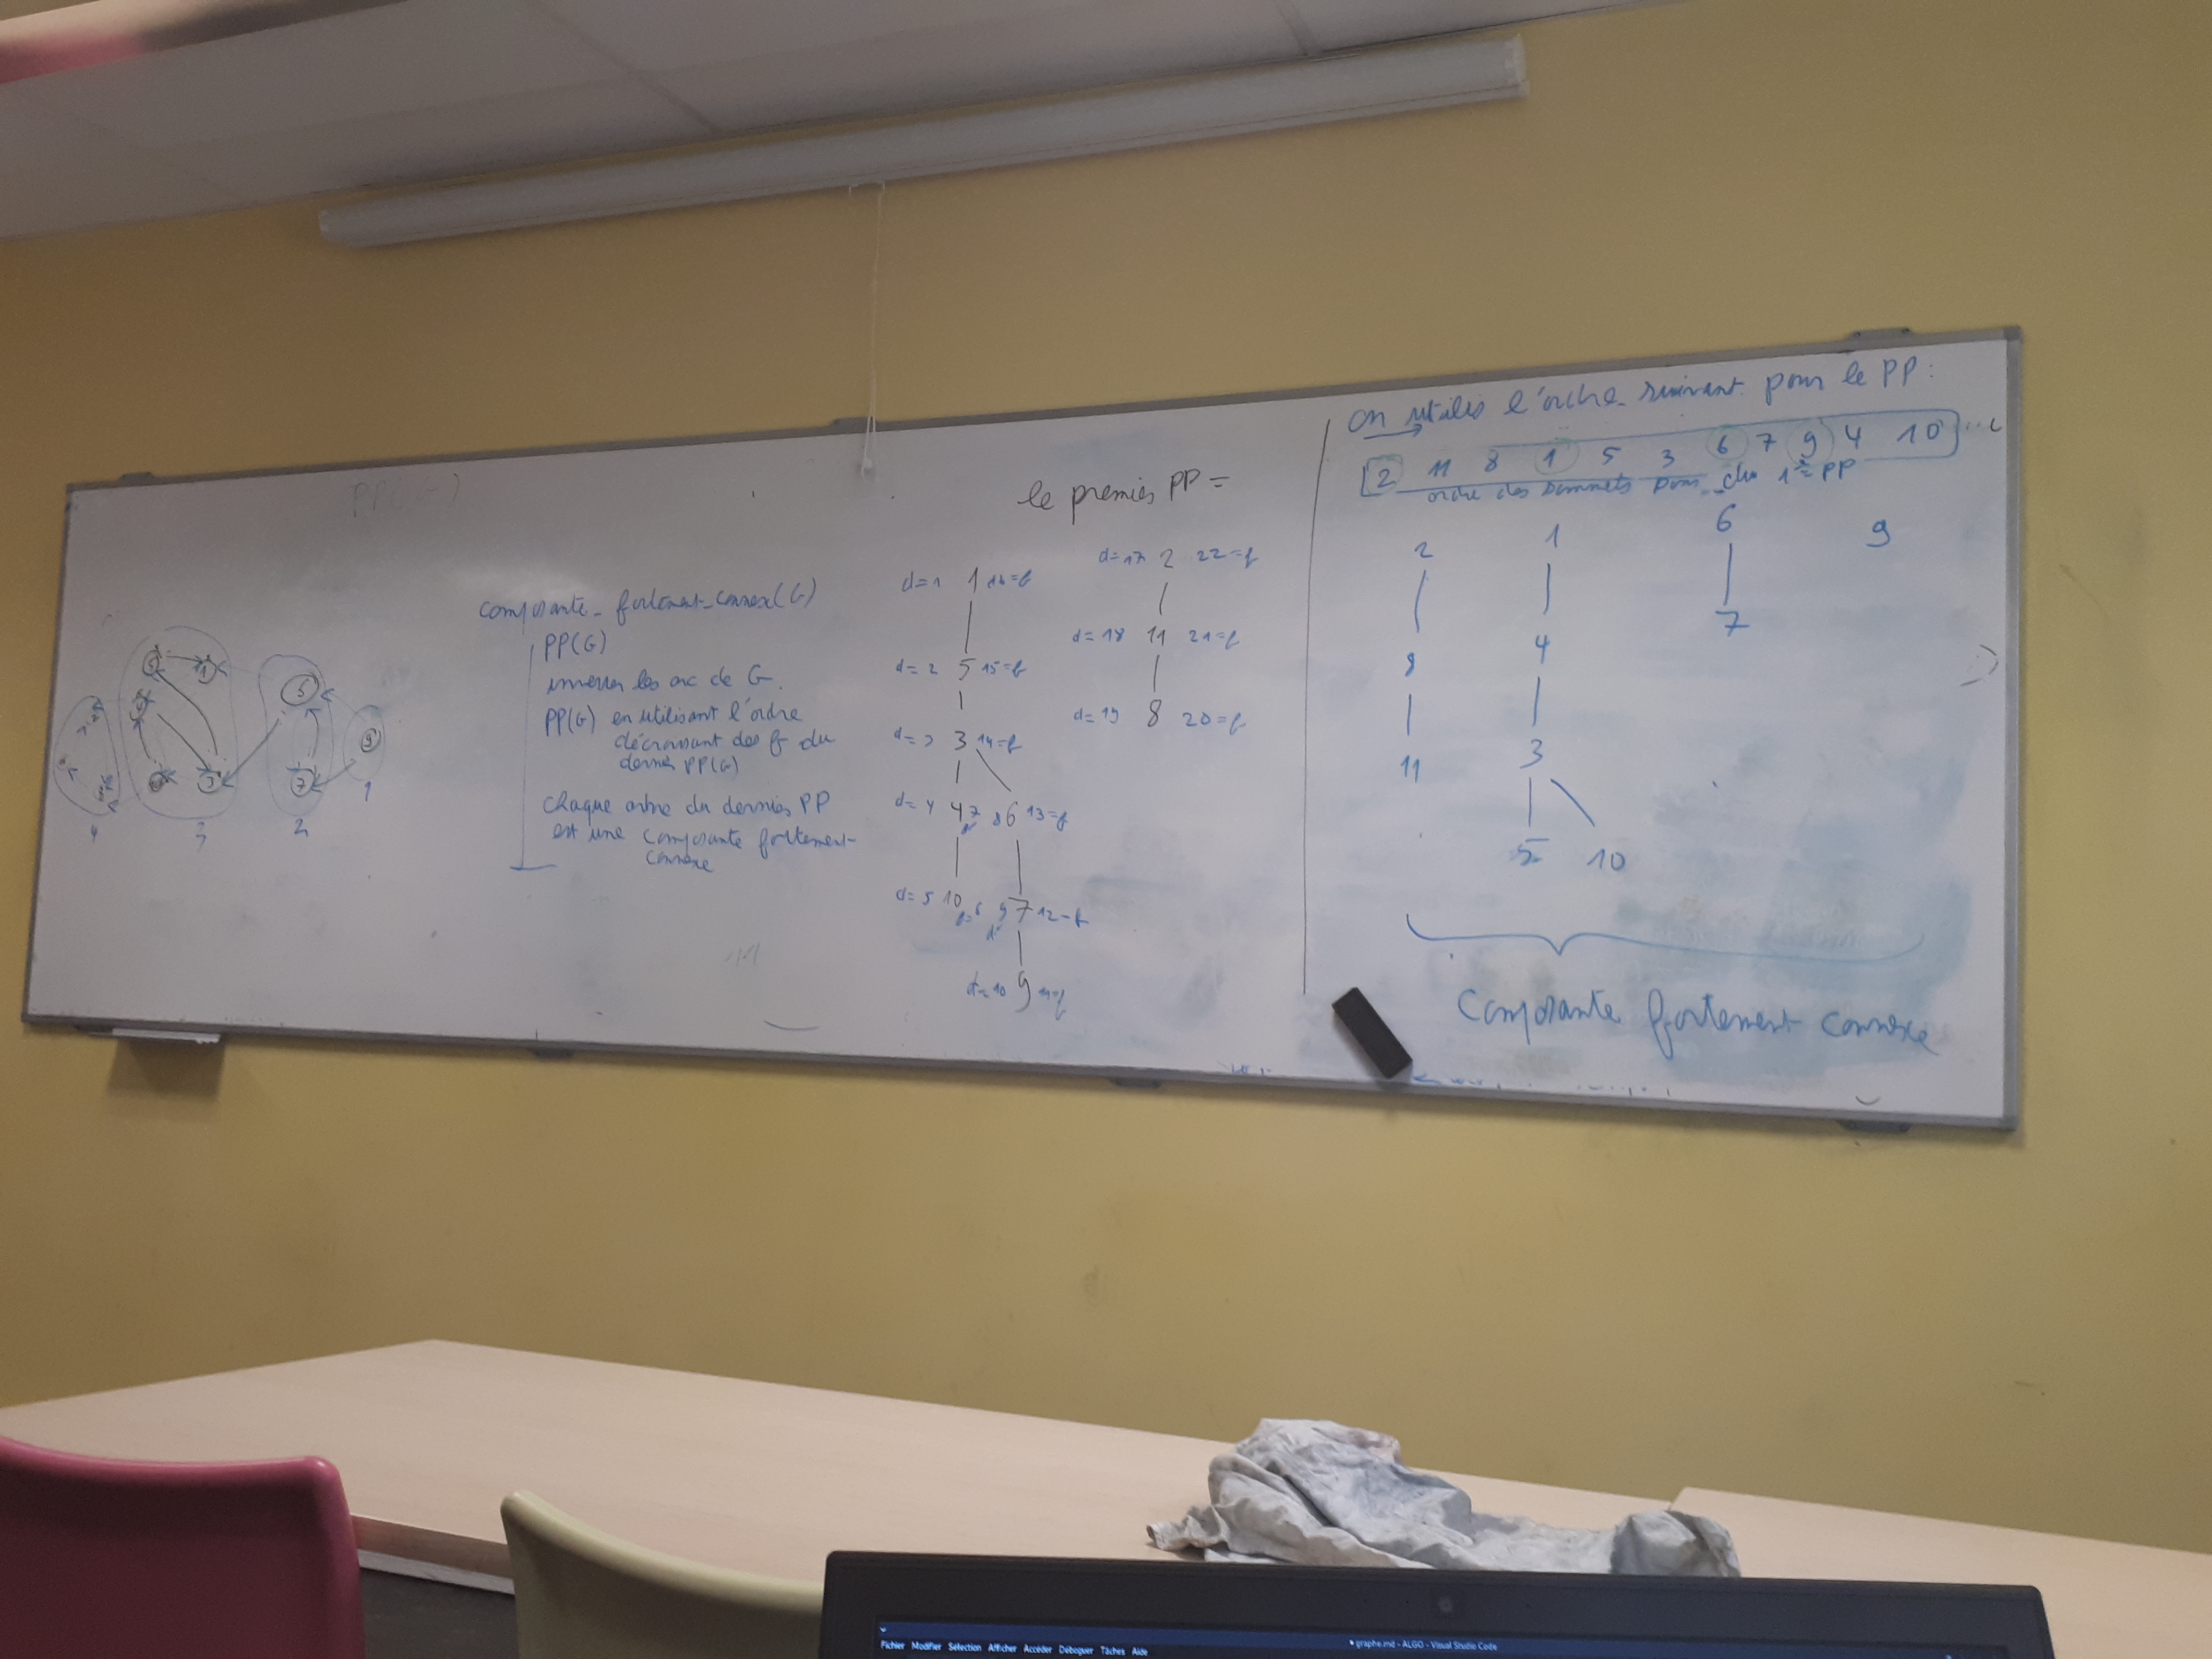 composante_fortement_connexe(G)
PP(G)
inverser les arc de G.
PP(G) en utilisant l'ordre
décroissant des f du
dernier PP(G)
chaque arbre du dernier PP
est une composante fortement-
connexe
4
3
2
1
6
7
9
le premier PP =
d=1 1 16=f
d=2 5 15=f
d=3 3 14=f
d=4 4 7 8 6 13=f
d=5 10 f=6 9 7 12=f
d=10 9 11=f
d=17 2 22=f
d=18 11 21=f
d=19 8 20=f
on utilis l'ordre suivant pour le PP :
2 11 8 1 5 3 6 7 9 4 10
ordre des sommets pour du 1er PP
2 1 6 9
8 4 7
11 3
5 10
composante fortement connexe
Fichier Modifier Sélection Afficher Accéder Déboguer Tâches Aide
graphe.md - ALGO - Visual Studio Code